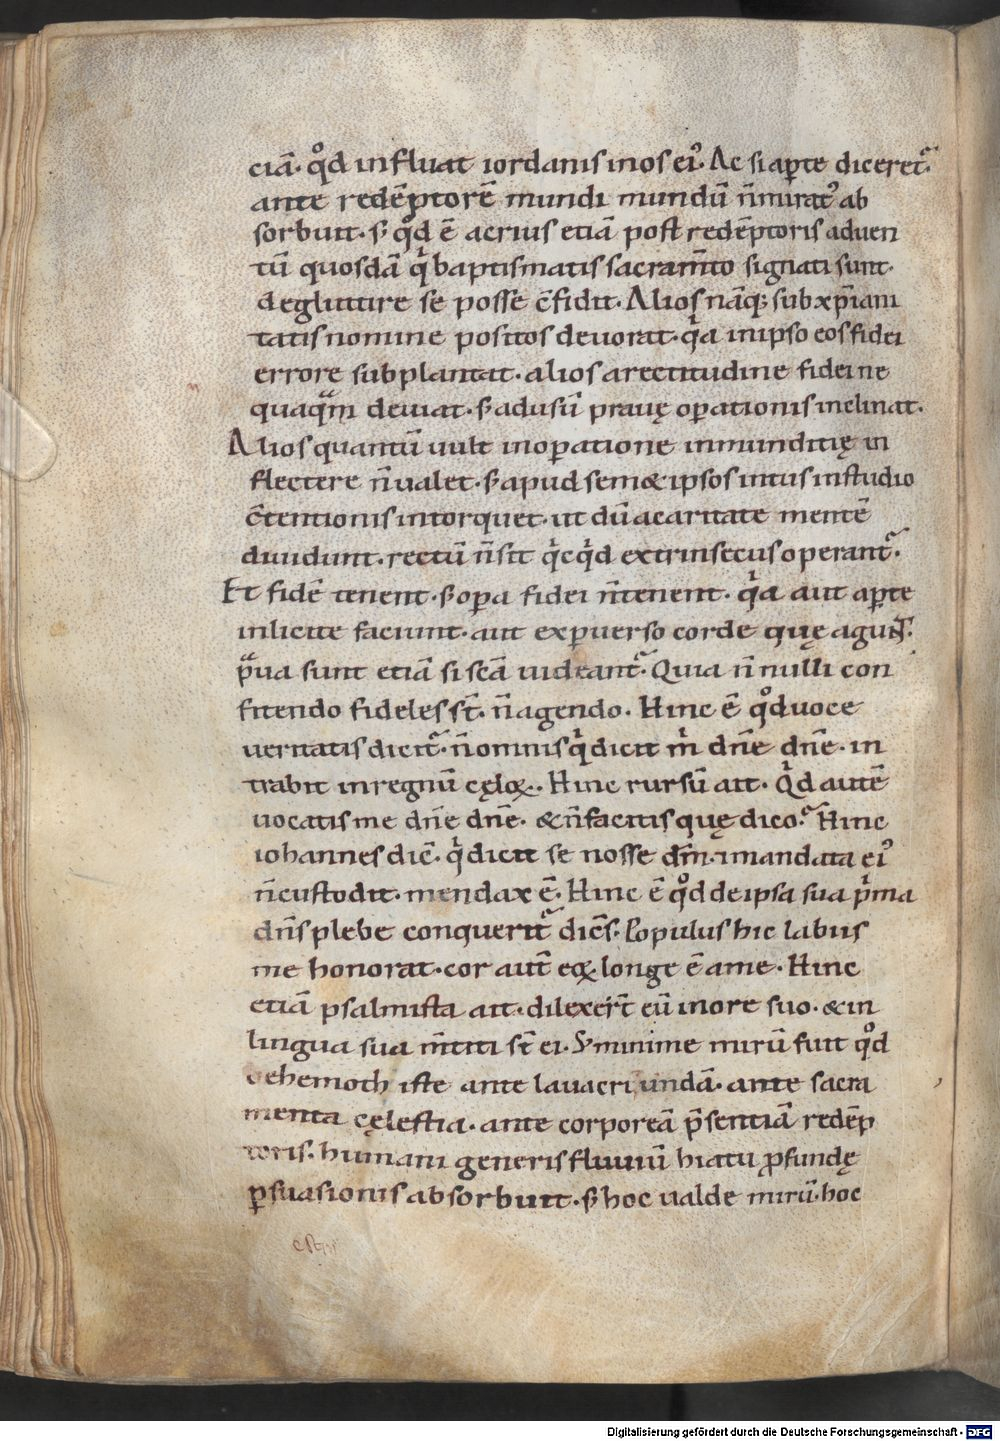 ciā· qͦd influat iordanis in os eiꝰ· Ac si aꝑte diceret᷑·
ante redēptorē mundi mundū n̄ miratꝰ ab
sorbuit· sꝫ qͦd ē acrius etiā post redēptoris aduen
tū quosdā qͥ baptismatis sacram̄to signati sunt·
deglutire se posse c̄fidit· Alios nāq; sub xp̄iani
tatis nomine positos deuorat· qͥa in ipso eos fidei
errore subplantat· alios a rectitudine fidei ne
quaqᷓm deuiat· sꝫ ad usū prauę oꝑationis inclinat·
Alios quantū uult in oꝑatione inmunditię in
flectere n̄ ualet· sꝫ apud sem& ipsos intus in studio
c̄tentionis intorquet· ut dū a caritate mentē
diuidunt· rectū n̄ sit qͥcqͥd extrinsecus operant᷑·
Et fidē tenent· sꝫ oꝑa fidei n̄ tenent· qͥa aut aꝑte
inlicite faciunt· aut ex ꝑuerso corde quę agunt·
pᷓua sunt etiā si sc̄a uideant᷑· Quia n̄nulli con
fitendo fideles st̄· n̄ agendo· Hinc ē qͦd uoce
ueritatis dicit᷑· n̄ omnis qͥ dicit m̄ dn̄e dn̄e· in
trabit in regnū cęloꝝ· Hinc rursū ait· Qͥd autē
uocatis me dn̄e dn̄e· & n̄ facitis quę dico? Hinc
iohannes dic̄· qͥ dicit se nosse dm̄· i mandata eiꝰ
n̄ custodit· mendax ē· Hinc ē qͦd de ipsa sua pͥma
dn̄s plebe conquerit᷑ dic̄s· Populus hic labiis
me honorat· cor aut̄ eoꝝ longe ē a me· Hinc
etiā psalmista ait· dilexer̄t eū in ore suo· & in
lingua sua m̄titi st̄ ei· Sꝫ minime mirū fuit qͦd
behemoth iste ante lauacri undā· ante sacra
menta cęlestia· ante corporeā p̄sentiā redēp
toris· humani generis fluuiū hiatu ꝓfundę
ꝑsuasionis absorbuit· sꝫ hoc ualde mirū· hoc
Digitalisierung gefördert durch die Deutsche Forschungsgemeinschaft - DFG